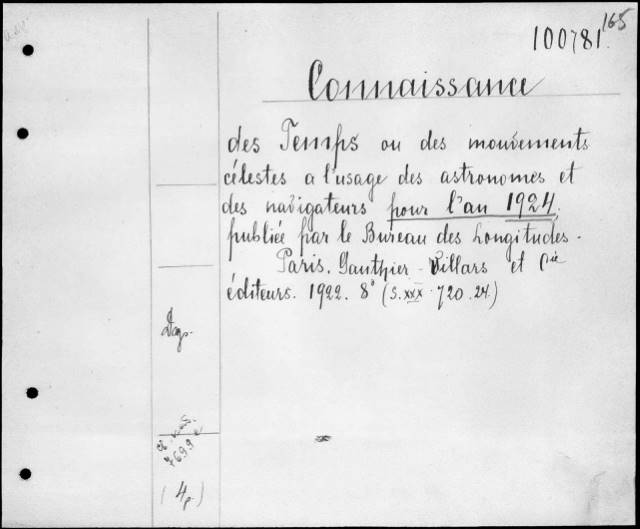 165
100781
Connaissance
des Temps ou des mouvements
célestes a l'usage des astronomes et
des navigateurs pour l'an 1924,
publiée par le Bureau des Longitudes.
Paris. Gauthier-Villars et Cie
éditeurs. 1922. 8° (S.XXX.720.24.)
7699
(4p.)